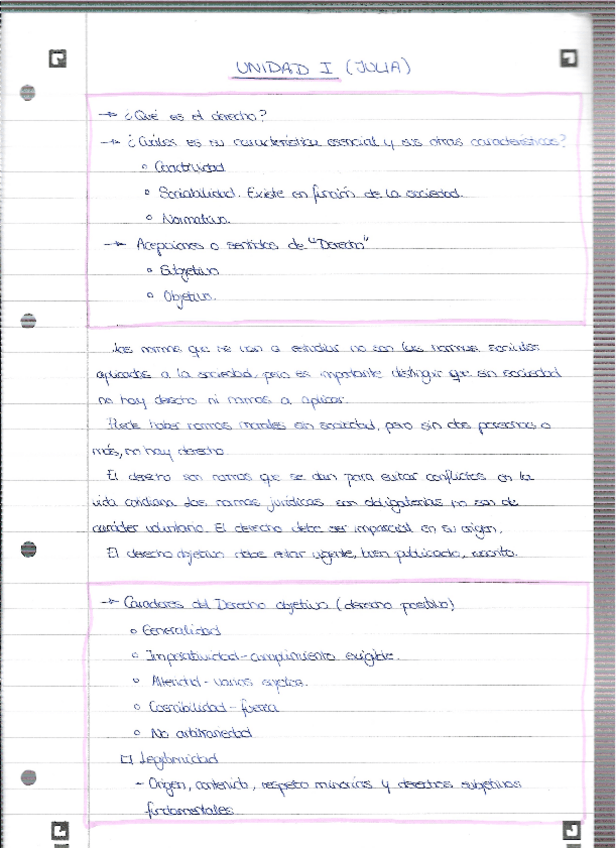 UNIDAD I (JULIA)
→ ¿Qué es el derecho?
→ ¿Cuáles es su característica esencial y sus otras características?
◦ Coactividad
◦ Sociabilidad. Existe en función de la sociedad.
◦ Normativa.
→ Acepciones o sentidos de "Derecho"
◦ Subjetivo
◦ Objetivo.
Las normas que se van a estudiar no son las normas sociales
aplicadas a la sociedad, pero es importante distinguir que sin sociedad
no hay derecho ni normas a aplicar.
Puede haber normas morales sin sociedad, pero sin dos personas o
más, no hay derecho.
El derecho son normas que se dan para evitar conflictos en la
vida cotidiana. Las normas jurídicas son obligatorias, no son de
carácter voluntario. El derecho debe ser imparcial en su origen.
El derecho objetivo debe estar vigente, bien publicado, escrito.
→ Caracteres del Derecho objetivo (derecho positivo)
◦ Generalidad
◦ Imperatividad - cumplimiento exigible.
◦ Alteridad - varios sujetos.
◦ Coercibilidad - fuerza
◦ No arbitrariedad
□ Legitimidad
- Origen, contenido, respeto minorías y derechos subjetivos
fundamentales.